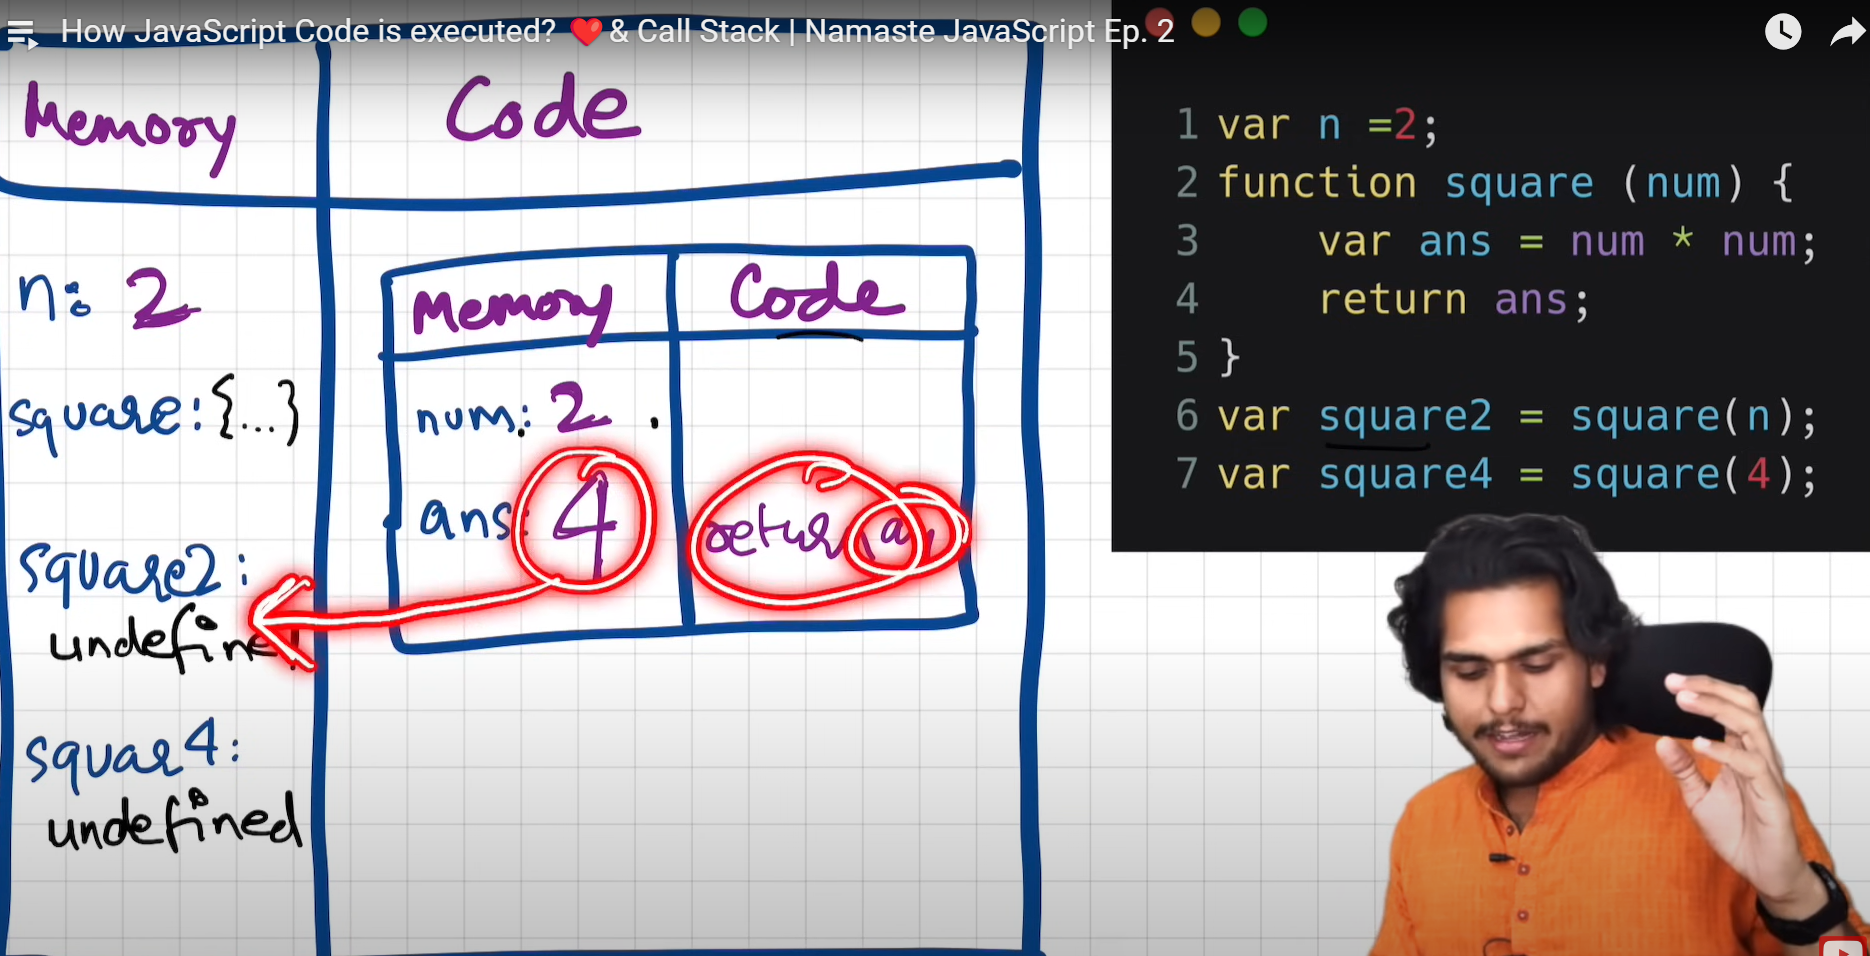 How JavaScript Code is executed? ❤️ & Call Stack | Namaste JavaScript Ep. 2
Memory
Code
n: 2
square: {...}
square2:
undefined
squar4:
undefined
Memory
Code
num: 2
ans: 4
return
1 var n =2;
2 function square (num) {
3 var ans = num * num;
4 return ans;
5 }
6 var square2 = square(n);
7 var square4 = square(4);